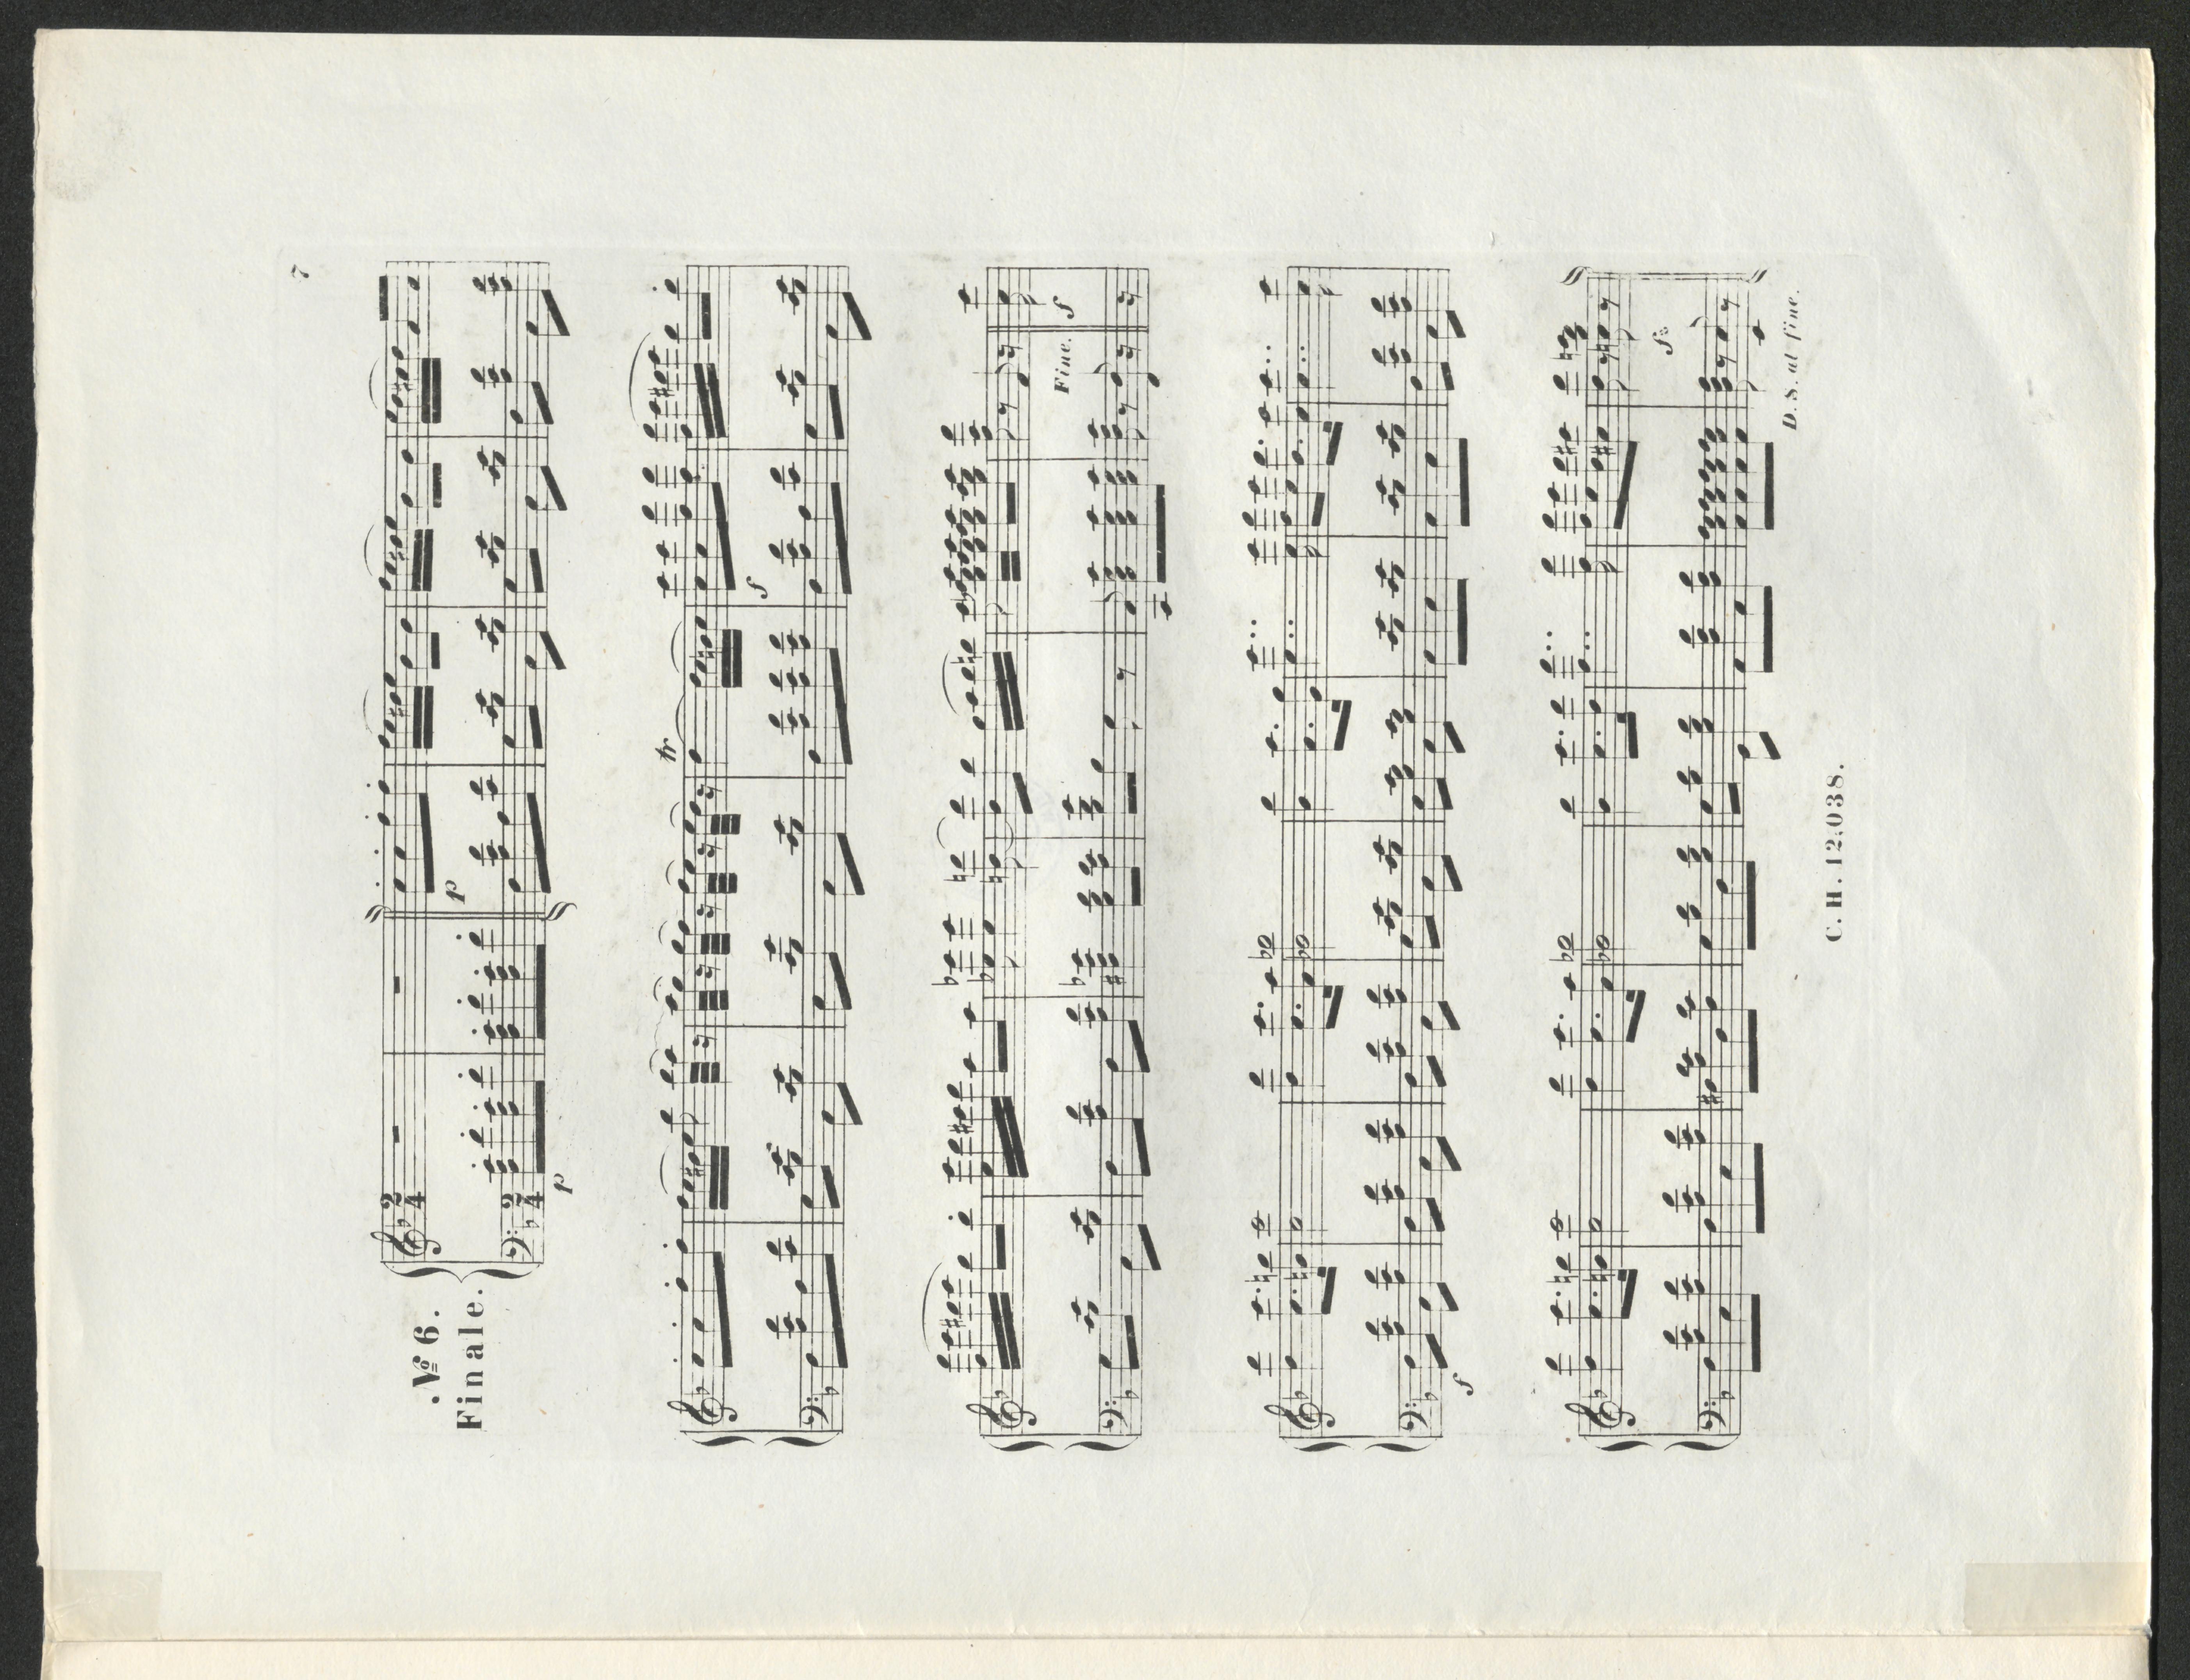 7
No 6.
Finale.
2
4
2
4
p
p
tr
f
Fine.
f
f
fz
D. S. al fine.
C. H. 12,038.